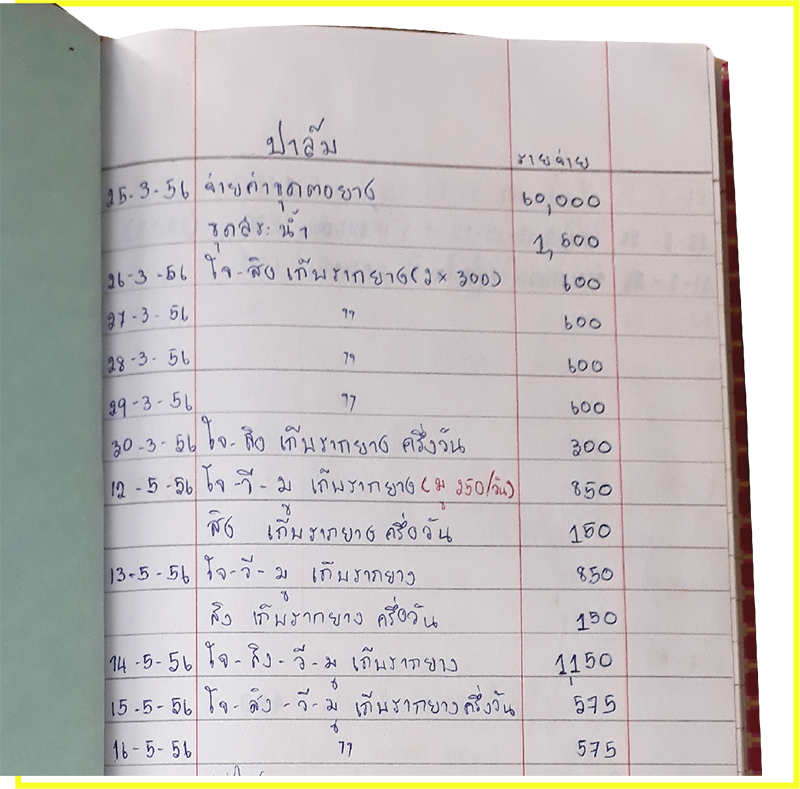 ปาล์ม
รายจ่าย
25-3-56 จ่ายค่าขุดตอยาง 60,000
ขุดสระน้ำ 1,500
26-3-56 ใจ-สิง เก็บรากยาง(2×300) 600
27-3-56 " 600
28-3-56 " 600
29-3-56 " 600
30-3-56 ใจ-สิง เก็บรากยาง ครึ่งวัน 300
12-5-56 ใจ-วี-มู เก็บรากยาง (มู 250/วัน) 850
สิง เก็บรากยาง ครึ่งวัน 150
13-5-56 ใจ-วี-มู เก็บรากยาง 850
สิง เก็บรากยาง ครึ่งวัน 150
14-5-56 ใจ-สิง-วี-มู เก็บรากยาง 1150
15-5-56 ใจ-สิง-วี-มู เก็บรากยางครึ่งวัน 575
16-5-56 " 575